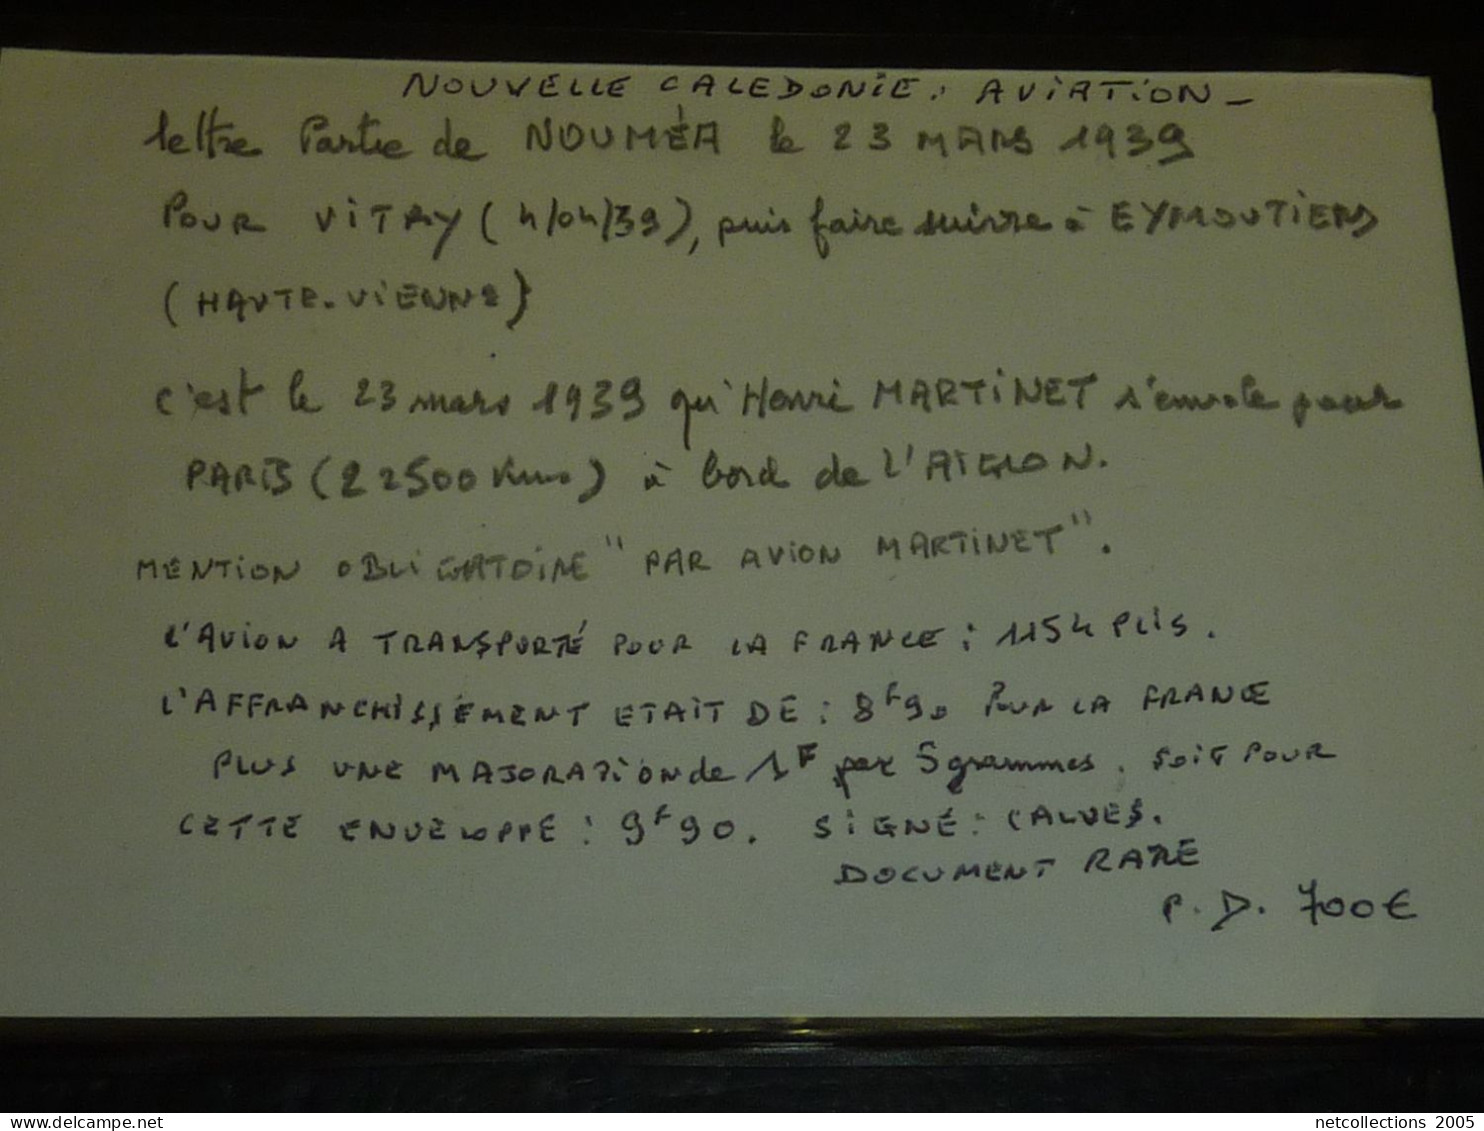 NOUVELLE CALEDONIE. AVIATION -
lettre Partie de NOUMÉA le 23 MARS 1939
POUR VITRY (4/04/39), puis faire suivre à EYMOUTIERS
(HAUTE-VIENNE)
c'est le 23 mars 1939 qu'Henri MARTINET s'envole pour
PARIS (22500 Kms) à bord de L'AIGLON.
MENTION OBLIGATOIRE "PAR AVION MARTINET".
L'AVION A TRANSPORTÉ POUR LA FRANCE : 1154 PLIS.
L'AFFRANCHISSEMENT ETAIT DE : 8F90 POUR LA FRANCE
PLUS UNE MAJORATION de 1F par 5 grammes. SOIT POUR
CETTE ENVELOPPE : 9F90. SIGNÉ : CALVES.
DOCUMENT RARE
P. D. 700€
delcampe.net
netcollections 2005